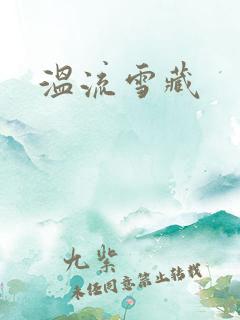 温流雪藏
九紫
未经同意禁止转载